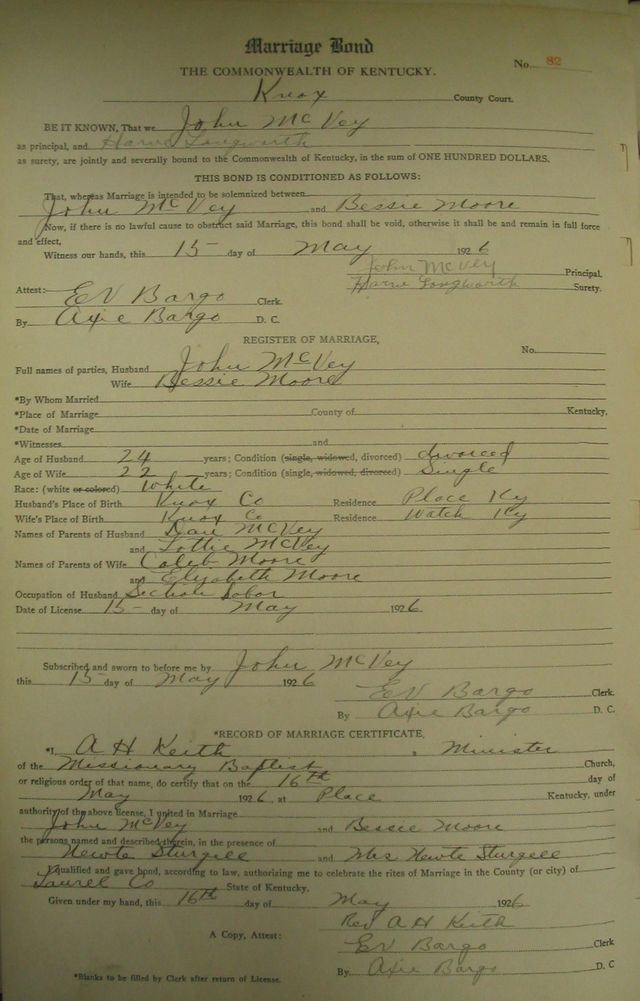 Marriage Bond
No. 82
THE COMMONWEALTH OF KENTUCKY.
Knox County Court.
BE IT KNOWN, That we John McVey
as principal, and Harve Longworth
as surety, are jointly and severally bound to the Commonwealth of Kentucky, in the sum of ONE HUNDRED DOLLARS.
THIS BOND IS CONDITIONED AS FOLLOWS:
That, whereas Marriage is intended to be solemnized between
John McVey and Bessie Moore
Now, if there is no lawful cause to obstruct said Marriage, this bond shall be void, otherwise it shall be and remain in full force
and effect,
Witness our hands, this 15 day of May 1926
John McVey Principal.
Harve Longworth Surety.
Attest: EV Bargo Clerk.
By Axie Bargo D. C.
REGISTER OF MARRIAGE,
No.
Full names of parties, Husband John McVey
Wife Bessie Moore
*By Whom Married
*Place of Marriage County of Kentucky,
*Date of Marriage
*Witnesses and
Age of Husband 24 years; Condition (single, widowed, divorced) divorced
Age of Wife 22 years; Condition (single, widowed, divorced) Single
Race: (white or colored) White
Husband's Place of Birth Knox Co Residence Place Ky
Wife's Place of Birth Knox Co Residence Watch Ky
Names of Parents of Husband McVey
and Lottie McVey
Names of Parents of Wife Caleb Moore
and Elizabeth Moore
Occupation of Husband Section Labor
Date of License 15 day of May 1926
Subscribed and sworn to before me by John McVey
this 15 day of May 1926
EV Bargo Clerk.
By Axie Bargo D. C.
*RECORD OF MARRIAGE CERTIFICATE,
*I, A H Keith, Minister
of the Missionary Baptist Church,
or religious order of that name, do certify that on the 16th day of
May 1926, at Place Kentucky, under
authority of the above license, I united in Marriage
John McVey and Bessie Moore
the persons named and described therein, in the presence of
Newte Sturgill and Mrs Newte Sturgill
Qualified and gave bond, according to law, authorizing me to celebrate the rites of Marriage in the County (or city) of
Laurel Co State of Kentucky.
Given under my hand, this 16th day of May 1926
Rev A H Keith
A Copy, Attest: EV Bargo Clerk
By Axie Bargo D. C
*Blanks to be filled by Clerk after return of License.